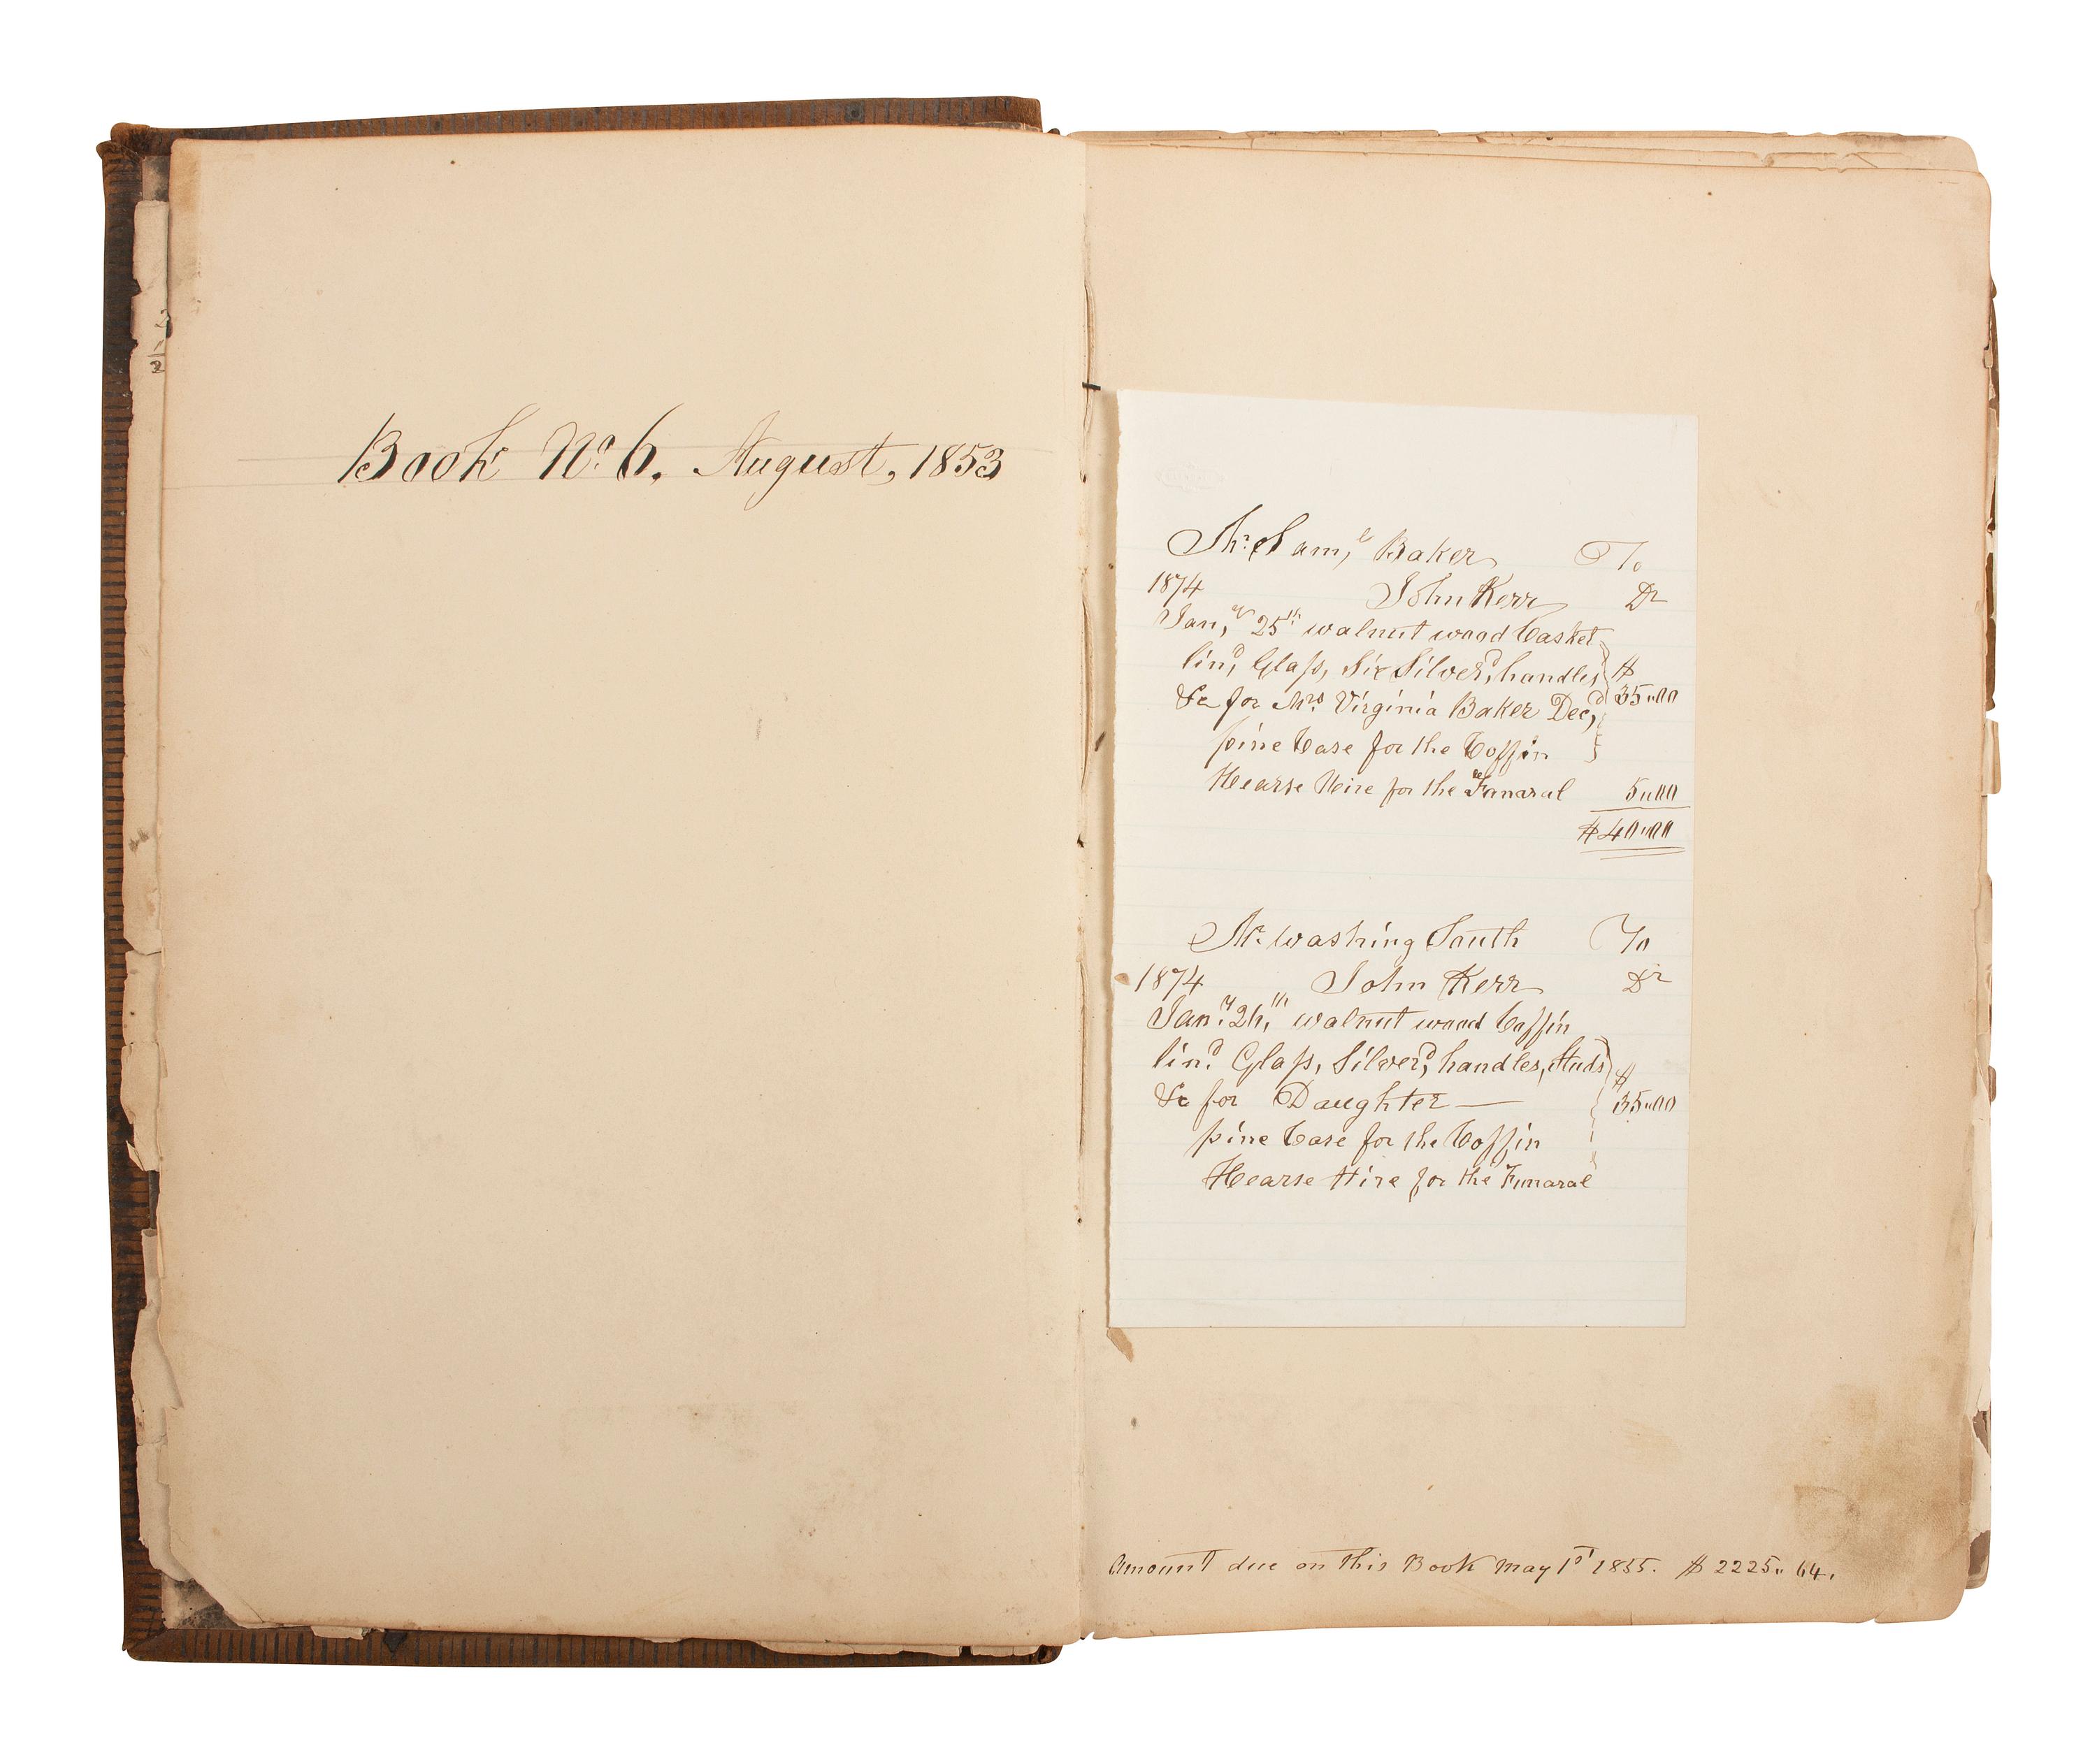 Book No. 6. August, 1853
Mr. Saml, Baker To
1874 John Kerr Dr
Jany, 25th walnut wood Casket
lind, Glass, Six Silverd, handles $
&c for Mrs. Virginia Baker Decd, 35.00
pine Case for the Coffin
Hearse Hire for the Funaral 5.00
$40.00
Mr. Washing South To
1874 John Kerr Dr
Jany. 26th, walnut wood Coffin
lind. Glass, Silverd, handles, Studs $
&c for Daughter — 35.00
pine Case for the Coffin
Hearse Hire for the Funaral
Amount due on this Book May 1st 1855. $2225.. 64.